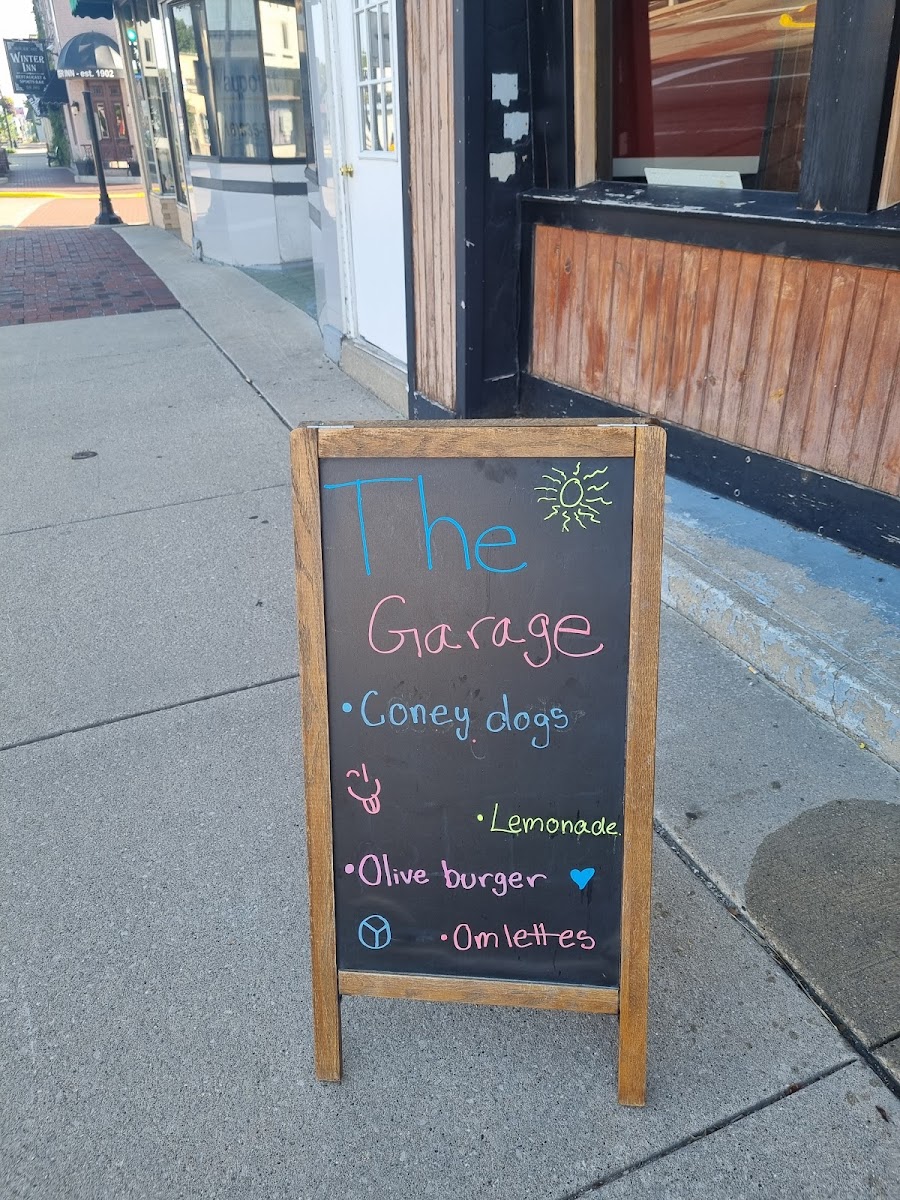 WINTER
INN
INN - est. 1902
The
Garage
• Coney dogs
• Lemonade
• Olive burger
• Omlettes